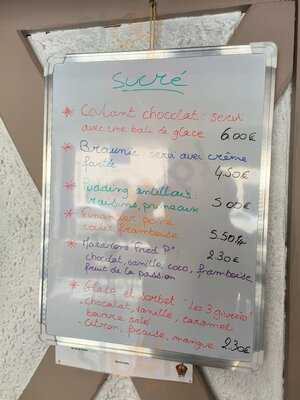 Sucré
* Coulant chocolat : servi
avec une boule de glace 6.00€
* Brownie sera avec crème
fouttée 4.50€
* Pudding antillais
raisins, pruneaux 5.00€
* Financier poire
coeur framboise 5.50
* Macarons Fred P°
chocolat, vanille, coco, framboise, 2.30€
fruit de la passion
* Glace et sorbet "les 3 givrés"
- chocolat, vanille, caramel
beurre salé
- citron, fraise, mangue 2.30€